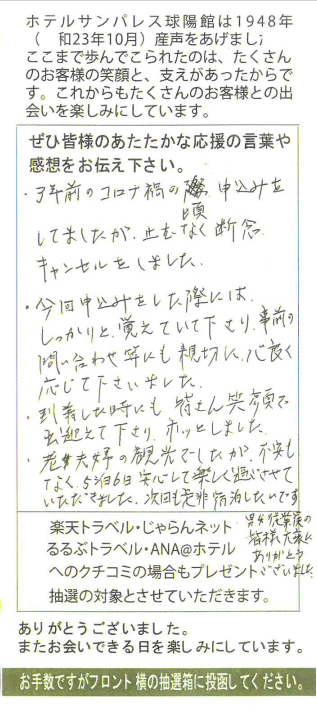 ホテルサンパレス球陽館は1948年
（ 和23年10月）産声をあげまし
ここまで歩んでこられたのは、たくさん
のお客様の笑顔と、支えがあったからで
す。これからもたくさんのお客様との出
会いを楽しみにしています。
ぜひ皆様のあたたかな応援の言葉や
感想をお伝え下さい。
・3年前のコロナ禍の頃 申込みを
してましたが、止むなく断念
キャンセルをしました。
・今回申込みをした際には、
しっかりと覚えていて下さり、事前の
問い合わせ等にも親切に、心良く
応じて下さいました。
・到着した時にも皆さん笑顔で
出迎えて下さり、ホッとしました。
・老夫婦の観光でしたが、不安も
なく、5泊6日安心して楽しく過ごさせて
いただきました。次回も是非宿泊したいです
男女従業員の
皆様、大変に
ありがとう
ございました。
楽天トラベル・じゃらんネット
るるぶトラベル・ANA@ホテル
へのクチコミの場合もプレゼント
抽選の対象とさせていただきます。
ありがとうございました。
またお会いできる日を楽しみにしています。
お手数ですがフロント横の抽選箱に投函してください。